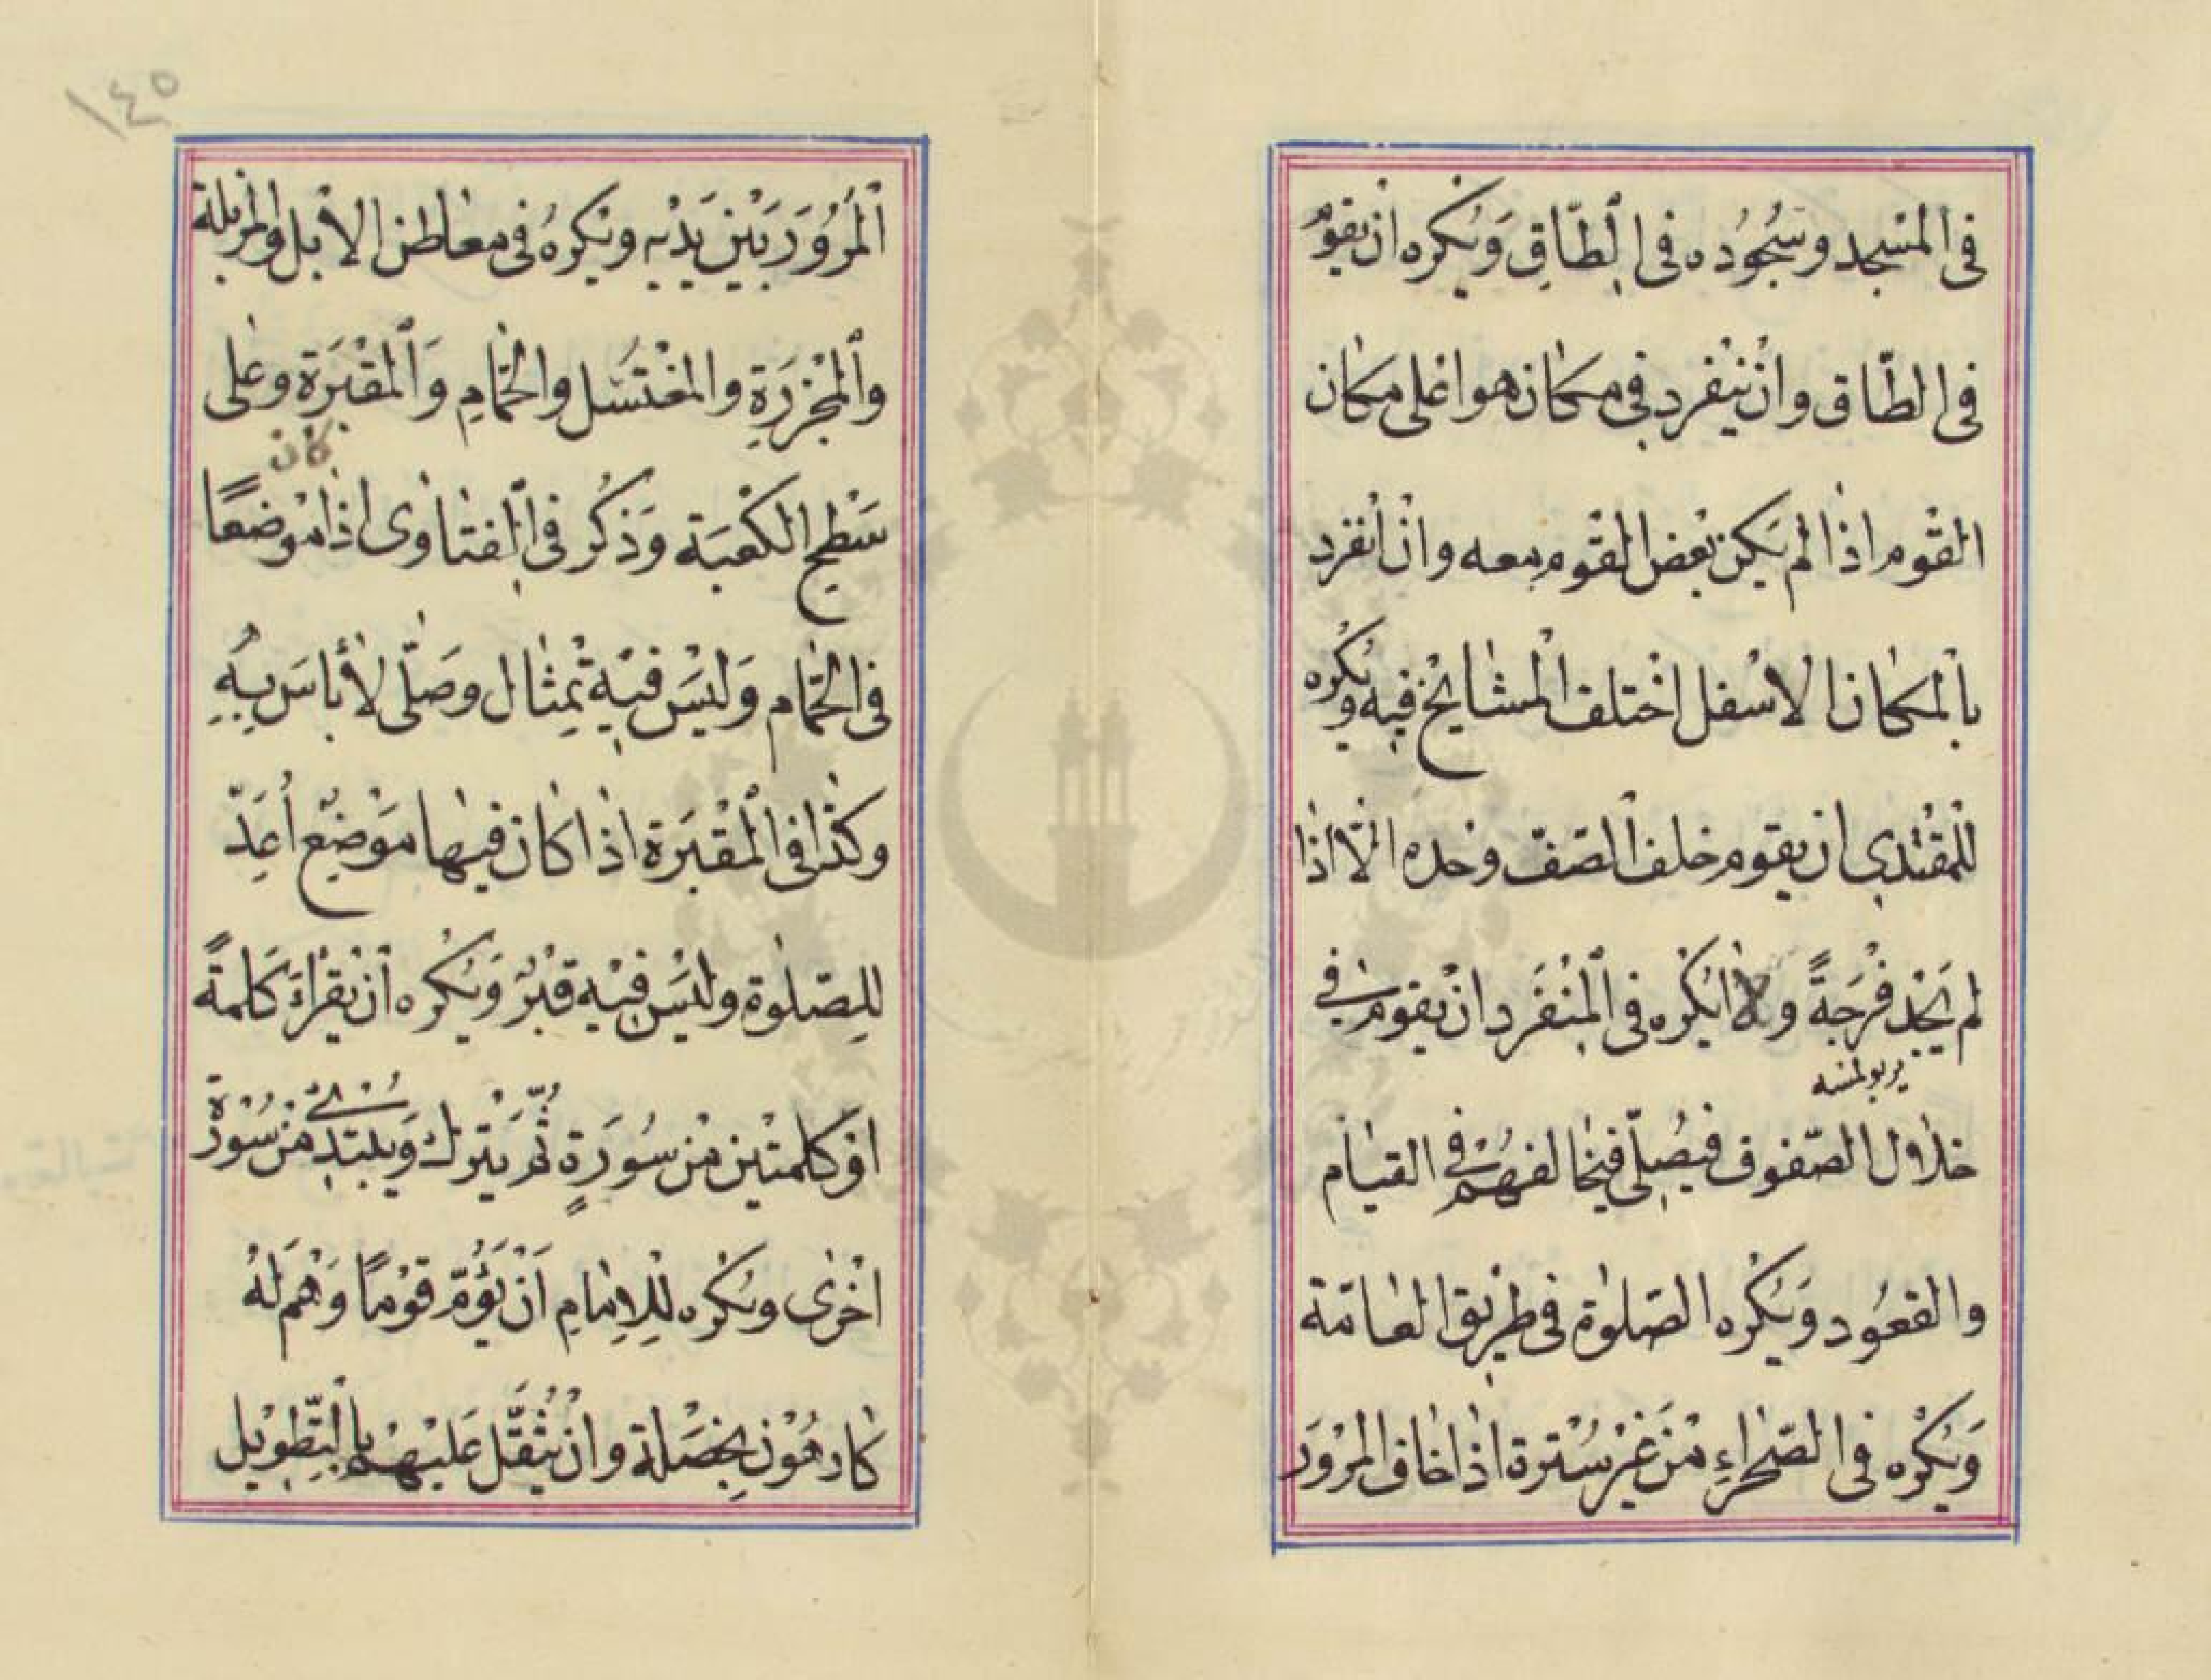 فى المسجد وسُجُوده فى الطّاقِ وَيُكره ان يقومَ
فى الطّاق وان ينفرد فى مكان هو اعلى مكان
القوم اذا لم يكن بعض القوم معه وان انفرد
بالمكان الاسفل اختلف المشايخ فيه ويكره
للمقتدى ان يقوم خلف الصّفّ وحده الّا اذا
لم يَجد فُرجَةً ولا يكره فى المنفرد ان يقوم فى
خلال الصّفوف فيُصلّى فيخالفهم فى القيام
والقعُود وَيُكره الصّلوة فى طريق العامّة
وَيُكره فى الصّحراءِ من غير سُترة اذا خاف المرور
١٤٥
المرُورَ بَيْنَ يَدَيْهِ ويكرهُ فى معاطن الابل والمزبلة
والمجزرَةِ والمغتسَل والحمّامِ وَالمقبَرَة وعلى
كان
سَطحِ الكعبَة وَذكُر فى الفتاوى اذا موضعًا
فى الحمّام وَليسَ فيهِ تمِثال وصَلّى لا بأسَ بِهِ
وكذا فى المقبَرَة اذا كان فيها مَوضع أُعِدّ
للِصّلوة وليسَ فيه قبرٌ وَيُكره أن يقرأ كلمةً
او كلمتين من سُورَةٍ ثُمّ يَترك وَيبتدئ من سُورة
اخرى ويكره للِامامِ اَن يَؤُمّ قومًا وَهم لهُ
كارهُون بخصَلة وان يُثقّل عَليهم بالتّطويل